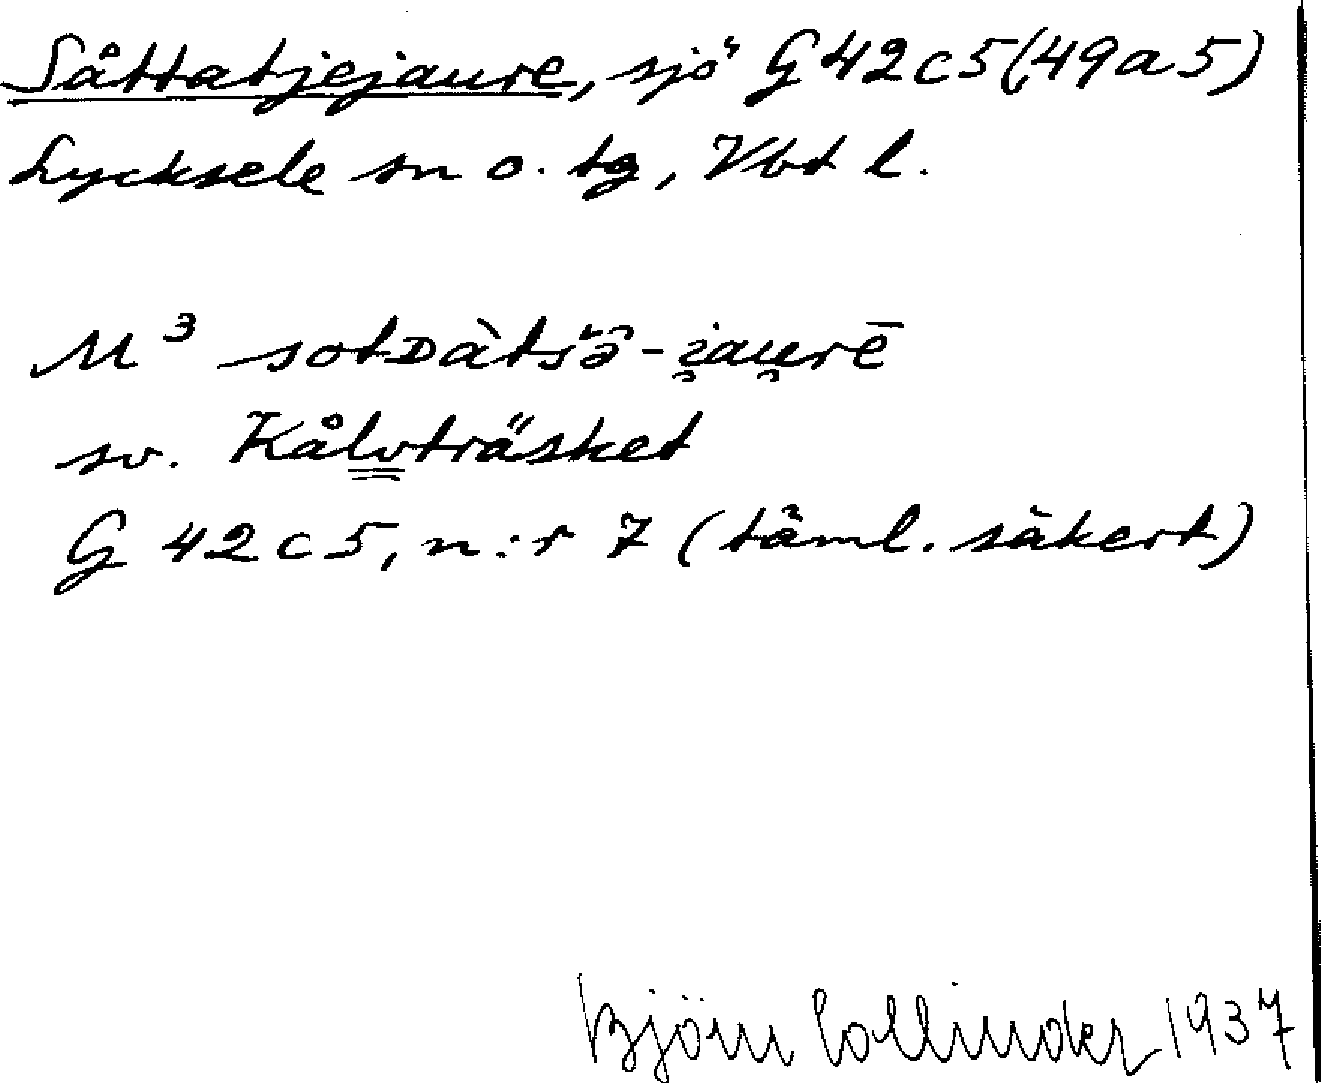 Såttatjejaure, sjö G 42 c 5 (49 a 5)
Lycksele sn o. tg, Vbt l.
M³ sotᴅàtśə̑̄-i̯au̯rē
sv. Kålvträsket
G 42 c 5, n:r 7 (täml. säkert)
Björn Collinder 1937